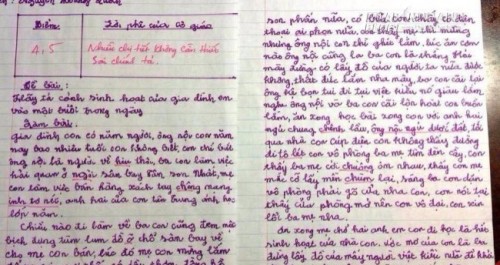 Điểm:
Lời phê của cô giáo
4,5
Nhiều chi tiết không cần thiết
Sai chính tả.
Đề bài:
Hãy tả cảnh sinh hoạt của gia đình em
vào một buổi trong ngày
Bài làm:
Gia đình con có năm người, ông nội con năm
nay bao nhiêu tuổi con không biết, con chỉ biết
ông nội là người về hưu thôi, ba con làm việc
hải quan ở ngoài sân bay Tân Sơn Nhất, mẹ
con làm việc bán hàng xách tay chồng mang
anh hai của con lên trung học
lớp năm.
Chiều nào đi làm về ba con cũng đem nào
bịch đựng tùm lum đồ ở chỗ sân bay về
cho mẹ con bán, lúc đó mẹ con mừng lắm
son phấn nữa, có bữa con thấy có điện
thoại ai phọn nữa, con thấy mẹ thì mừng
nhưng ông nội con thì ghét lắm, lúc ăn cơm
nào ông nội cũng la ba con là thằng Hải
mày đừng có lấy đồ của người ta nữa được
không, thất đức lắm nha mày, ba con cãi lại
ông là bọn tui đi tại việt kiều nó giàu lắm,
nghe ông nội với ba con cãi lộn hoài con buồn
lắm, ăn xong học bài xong con với anh hai
ngủ chung chênh lầu, ông nội ngủ dưới đất, tối
qua nhà con cúp điện con không thấy đường
đi lộ lết con vô phòng ba mẹ tìm đèn cầy, con
thấy ba mẹ cỡi chuồng ôm nhau, thấy con mẹ
mắc cỡ lấy mền chùm lại, sáng ba con dặn
vô phòng phải gõ cửa nha con, con nói tại
thấy cửa phòng mở nên con vô đại, con xin
lỗi ba mẹ nha.
ăn xong mẹ chở hai anh em con đi học là hết
sinh hoạt của nhà con. Ước mơ của con là ba
đừng lấy đồ của mấy người việt kiều nữa để khỏi